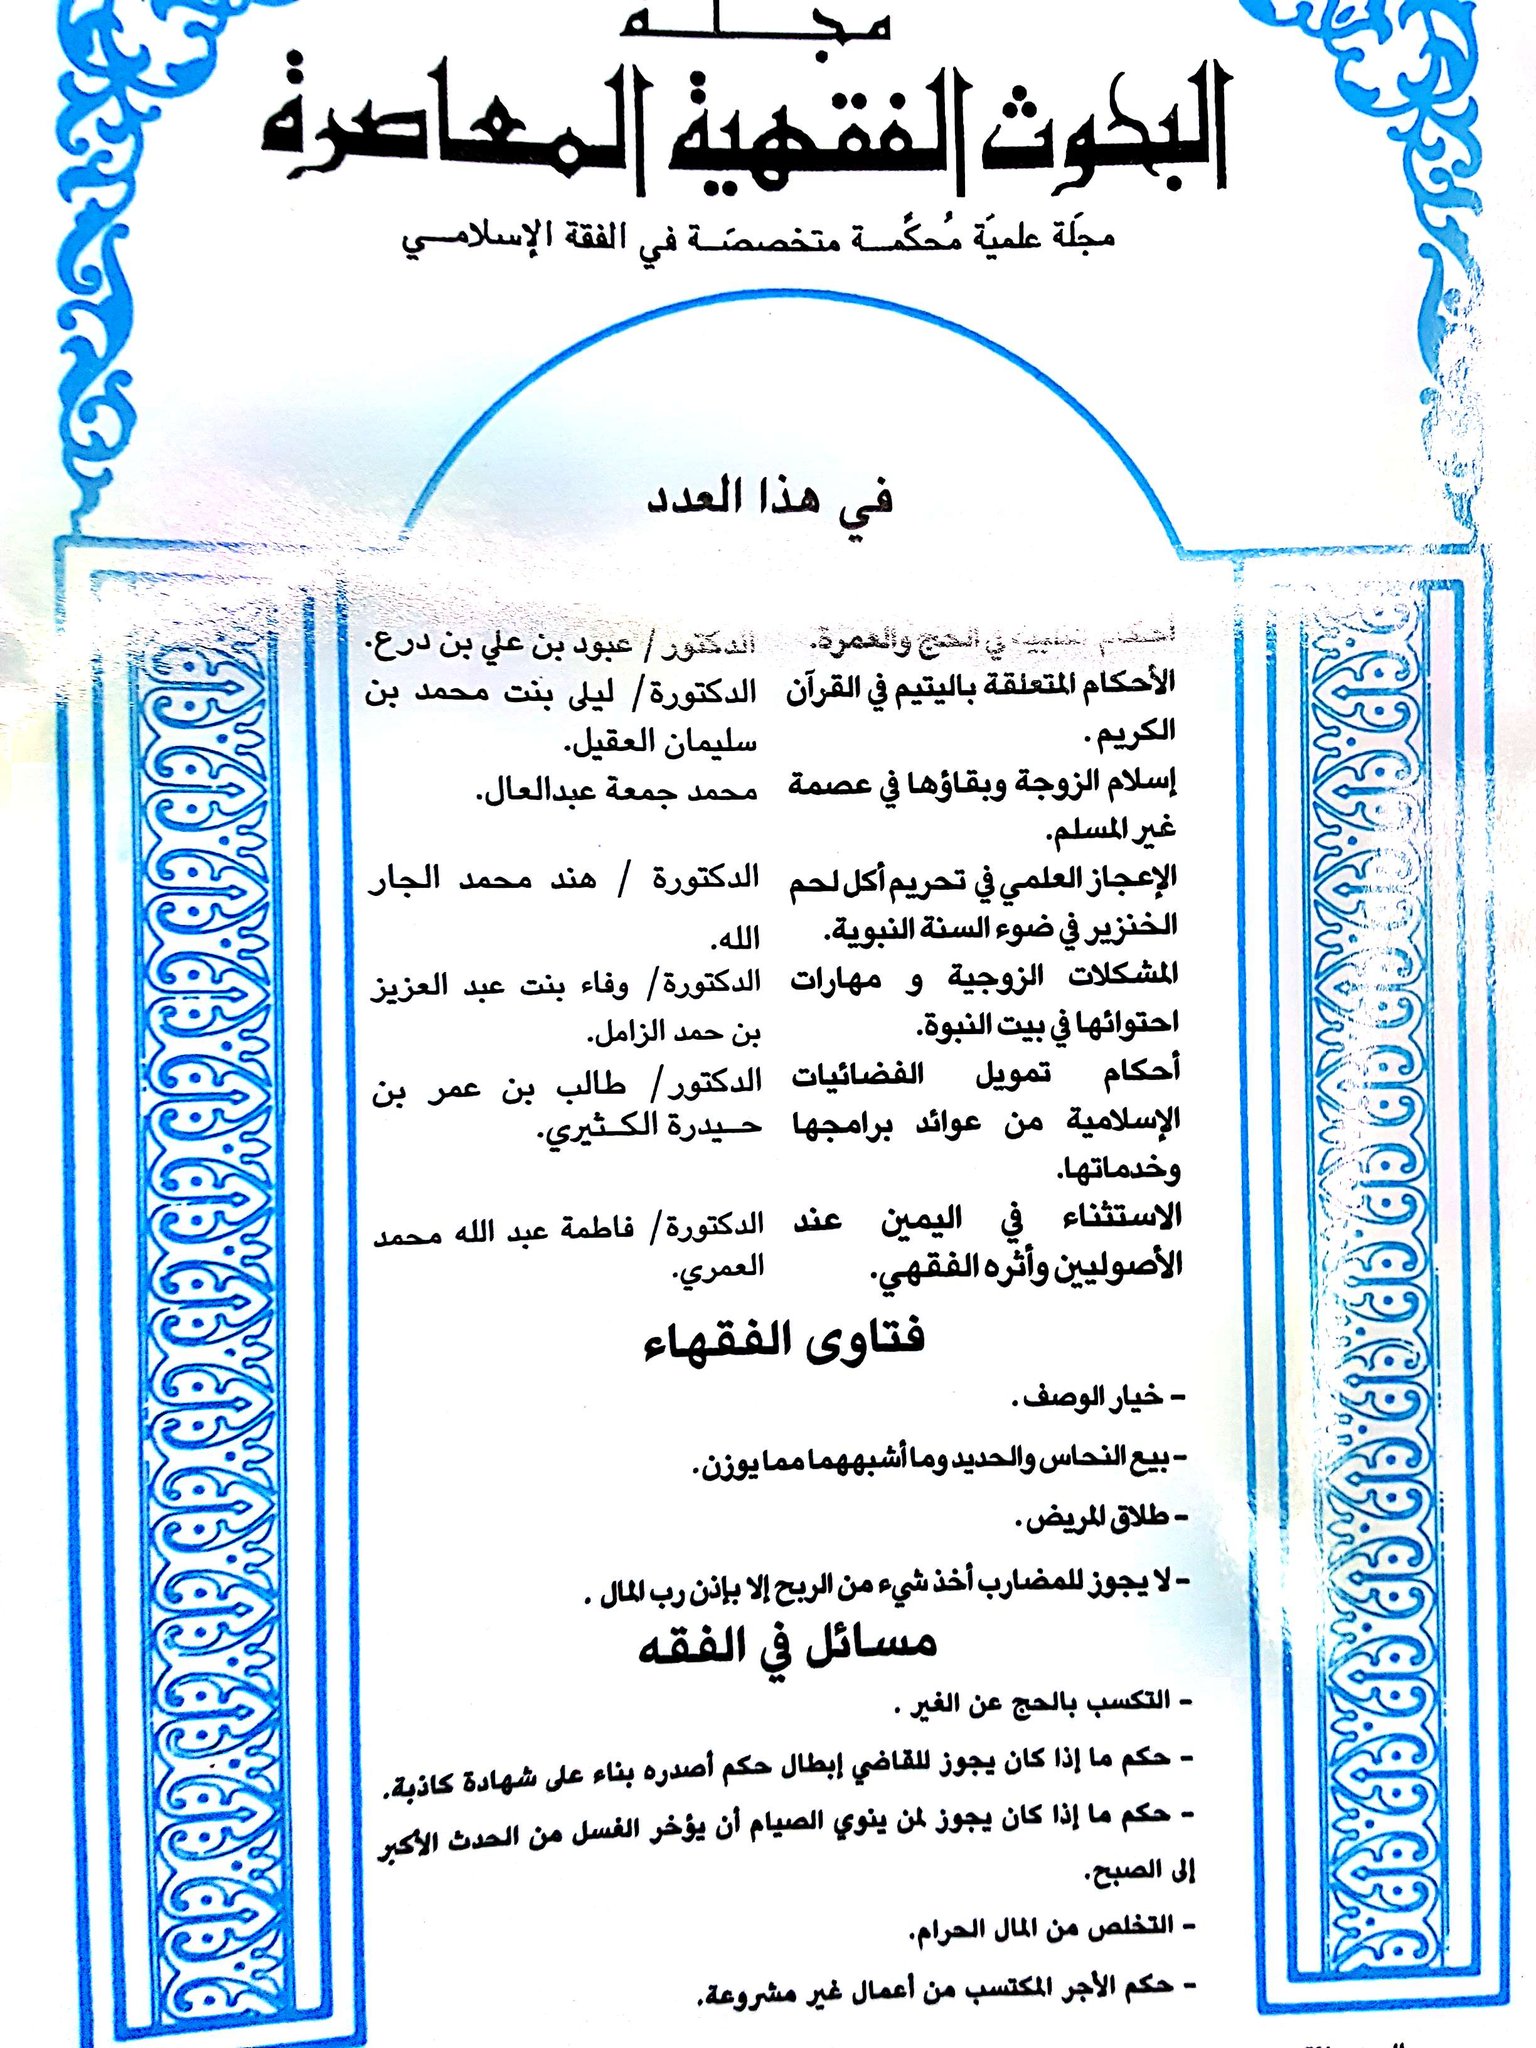 مجلة
البحوث الفقهية المعاصرة
مجلة علمية مُحكَّمة متخصصة في الفقة الإسلامي
في هذا العدد
أحكام التلبية في الحج والعمرة. الدكتور/ عبود بن علي بن درع.
الأحكام المتعلقة باليتيم في القرآن الدكتورة/ ليلى بنت محمد بن
الكريم. سليمان العقيل.
إسلام الزوجة وبقاؤها في عصمة محمد جمعة عبدالعال.
غير المسلم.
الإعجاز العلمي في تحريم أكل لحم الدكتورة / هند محمد الجار
الخنزير في ضوء السنة النبوية. الله.
المشكلات الزوجية و مهارات الدكتورة/ وفاء بنت عبد العزيز
احتوائها في بيت النبوة. بن حمد الزامل.
أحكام تمويل الفضائيات الدكتور/ طالب بن عمر بن
الإسلامية من عوائد برامجها حيدرة الكثيري.
وخدماتها.
الاستثناء في اليمين عند الدكتورة/ فاطمة عبد الله محمد
الأصوليين وأثره الفقهي. العمري.
فتاوى الفقهاء
- خيار الوصف.
- بيع النحاس والحديد وما أشبههما مما يوزن.
- طلاق المريض.
- لا يجوز للمضارب أخذ شيء من الربح إلا بإذن رب المال .
مسائل في الفقه
- التكسب بالحج عن الغير .
- حكم ما إذا كان يجوز للقاضي إبطال حكم أصدره بناء على شهادة كاذبة.
- حكم ما إذا كان يجوز لمن ينوي الصيام أن يؤخر الغسل من الحدث الأكبر
إلى الصبح.
- التخلص من المال الحرام.
- حكم الأجر المكتسب من أعمال غير مشروعة.